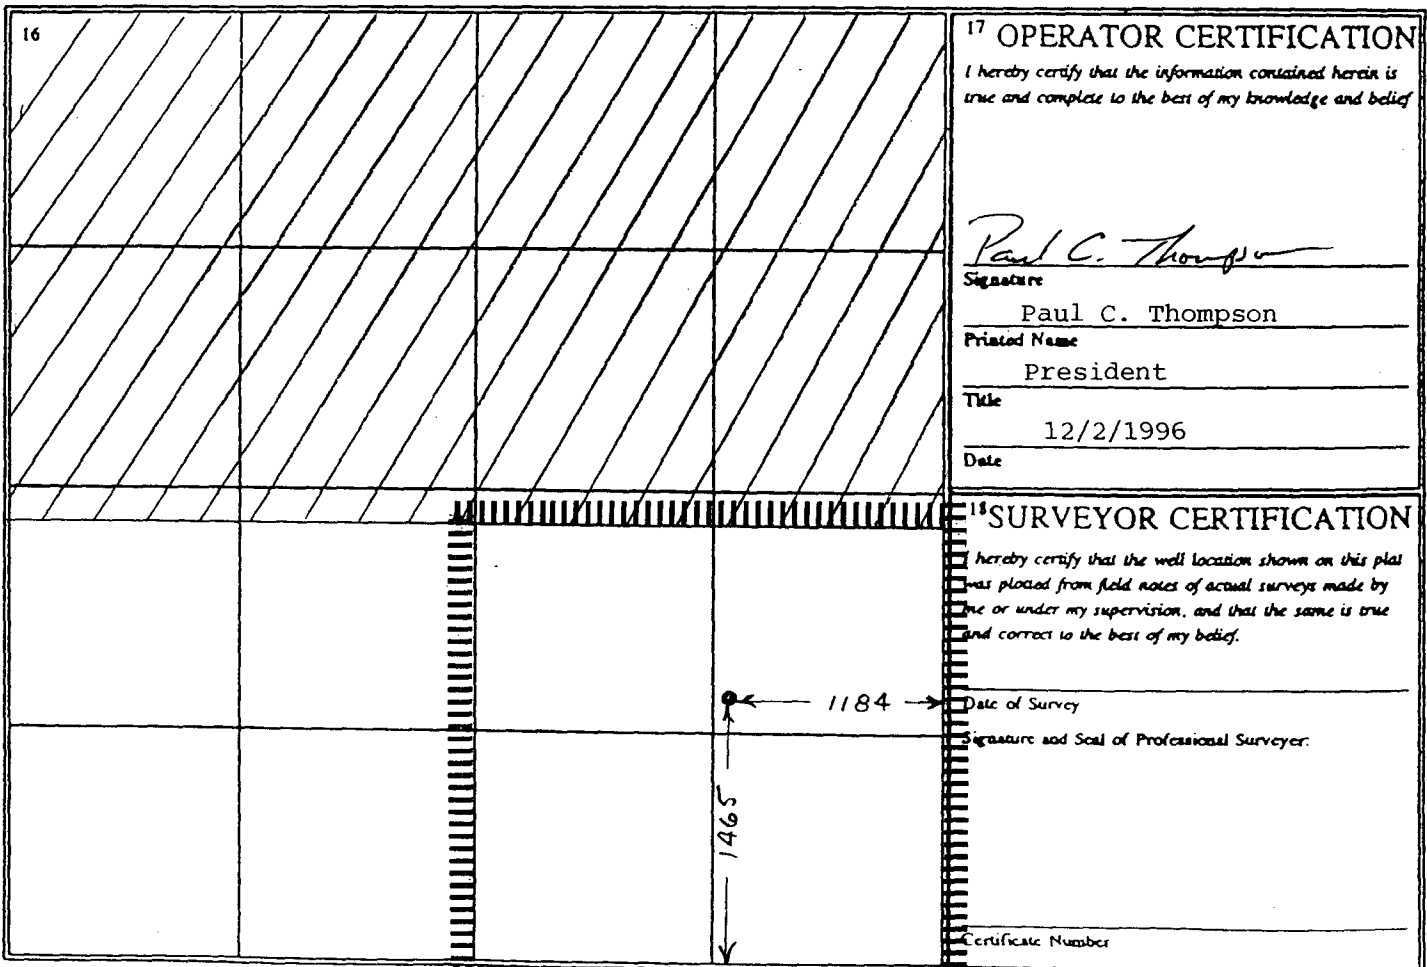 16
17 OPERATOR CERTIFICATION
I hereby certify that the information contained herein is
true and complete to the best of my knowledge and belief
Paul C. Thompson
Signature
Paul C. Thompson
Printed Name
President
Title
12/2/1996
Date
18 SURVEYOR CERTIFICATION
I hereby certify that the well location shown on this plat
was plotted from field notes of actual surveys made by
me or under my supervision, and that the same is true
and correct to the best of my belief.
1184
Date of Survey
Signature and Seal of Professional Surveyer:
1465
Certificate Number